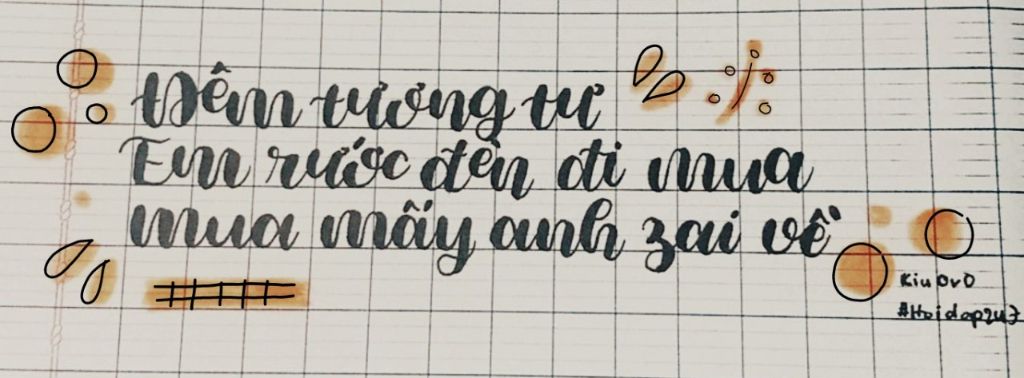 Đêm tương tư
Em rước đèn đi mua
mua mấy anh zai về
Kiu OvO
#Hoidap247